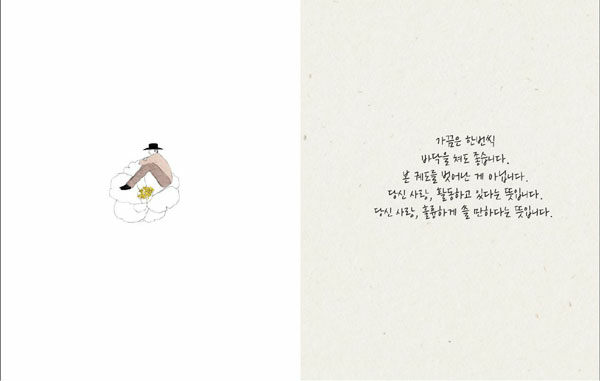 가끔은 한번씩
바닥을 쳐도 좋습니다.
본 궤도를 벗어난 게 아닙니다.
당신 사랑, 활동하고 있다는 뜻입니다.
당신 사랑, 훌륭하게 쓸 만하다는 뜻입니다.